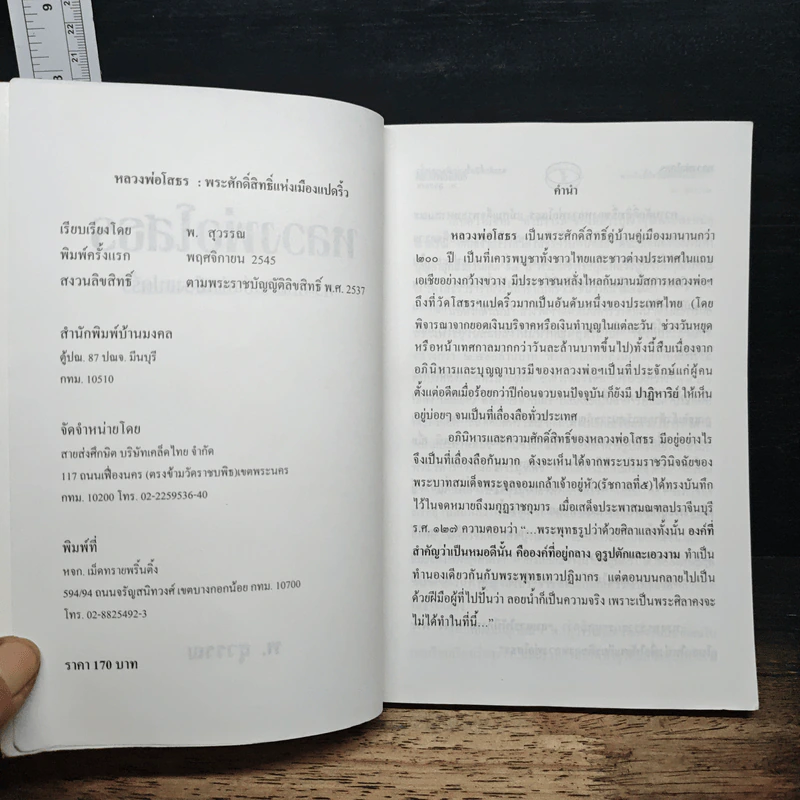 หลวงพ่อโสธร : พระศักดิ์สิทธิ์แห่งเมืองแปดริ้ว
เรียบเรียงโดย พ. สุวรรณ
พิมพ์ครั้งแรก พฤศจิกายน 2545
สงวนลิขสิทธิ์ ตามพระราชบัญญัติลิขสิทธิ์ พ.ศ. 2537
สำนักพิมพ์บ้านมงคล
ตู้ปณ. 87 ปณจ. มีนบุรี
กทม. 10510
จัดจำหน่ายโดย
สายส่งศึกษิต บริษัทเคล็ดไทย จำกัด
117 ถนนเฟื่องนคร (ตรงข้ามวัดราชบพิธ)เขตพระนคร
กทม. 10200 โทร. 02-2259536-40
พิมพ์ที่
หจก. เม็ดทรายพริ้นติ้ง
594/94 ถนนจรัญสนิทวงศ์ เขตบางกอกน้อย กทม. 10700
โทร. 02-8825492-3
ราคา 170 บาท
คำนำ
หลวงพ่อโสธร เป็นพระศักดิ์สิทธิ์คู่บ้านคู่เมืองมานานกว่า
๒๐๐ ปี เป็นที่เคารพบูชาทั้งชาวไทยและชาวต่างประเทศในแถบ
เอเชียอย่างกว้างขวาง มีประชาชนหลั่งไหลกันมานมัสการหลวงพ่อฯ
ถึงที่วัดโสธรฯแปดริ้วมากเป็นอันดับหนึ่งของประเทศไทย (โดย
พิจารณาจากยอดเงินบริจาคหรือเงินทำบุญในแต่ละวัน ช่วงวันหยุด
หรือหน้าเทศกาลมากกว่าวันละล้านบาทขึ้นไป)ทั้งนี้สืบเนื่องจาก
อภินิหารและบุญญาบารมีของหลวงพ่อฯเป็นที่ประจักษ์แก่ผู้คน
ตั้งแต่อดีตเมื่อร้อยกว่าปีก่อนจวบจนปัจจุบัน ก็ยังมี ปาฏิหาริย์ ให้เห็น
อยู่บ่อยๆ จนเป็นที่เลื่องลือทั่วประเทศ
อภินิหารและความศักดิ์สิทธิ์ของหลวงพ่อโสธร มีอยู่อย่างไร
จึงเป็นที่เลื่องลือกันมาก ดังจะเห็นได้จากพระบรมราชวินิจฉัยของ
พระบาทสมเด็จพระจุลจอมเกล้าเจ้าอยู่หัว(รัชกาลที่๕)ได้ทรงบันทึก
ไว้ในจดหมายถึงมกุฎราชกุมาร เมื่อเสด็จประพาสมณฑลปราจีนบุรี
ร.ศ. ๑๒๗ ความตอนว่า “...พระพุทธรูปว่าด้วยศิลาแลงทั้งนั้น องค์ที่
สำคัญว่าเป็นหมอดีนั้น คือองค์ที่อยู่กลาง ดูรูปตักและเอวงาม ทำเป็น
ทำนองเดียวกันกับพระพุทธเทวปฏิมากร แต่ตอนบนกลายไปเป็น
ด้วยฝีมือผู้ที่ไปปั้นว่า ลอยน้ำก็เป็นความจริง เพราะเป็นพระศิลาคงจะ
ไม่ได้ทำในที่นี้...”